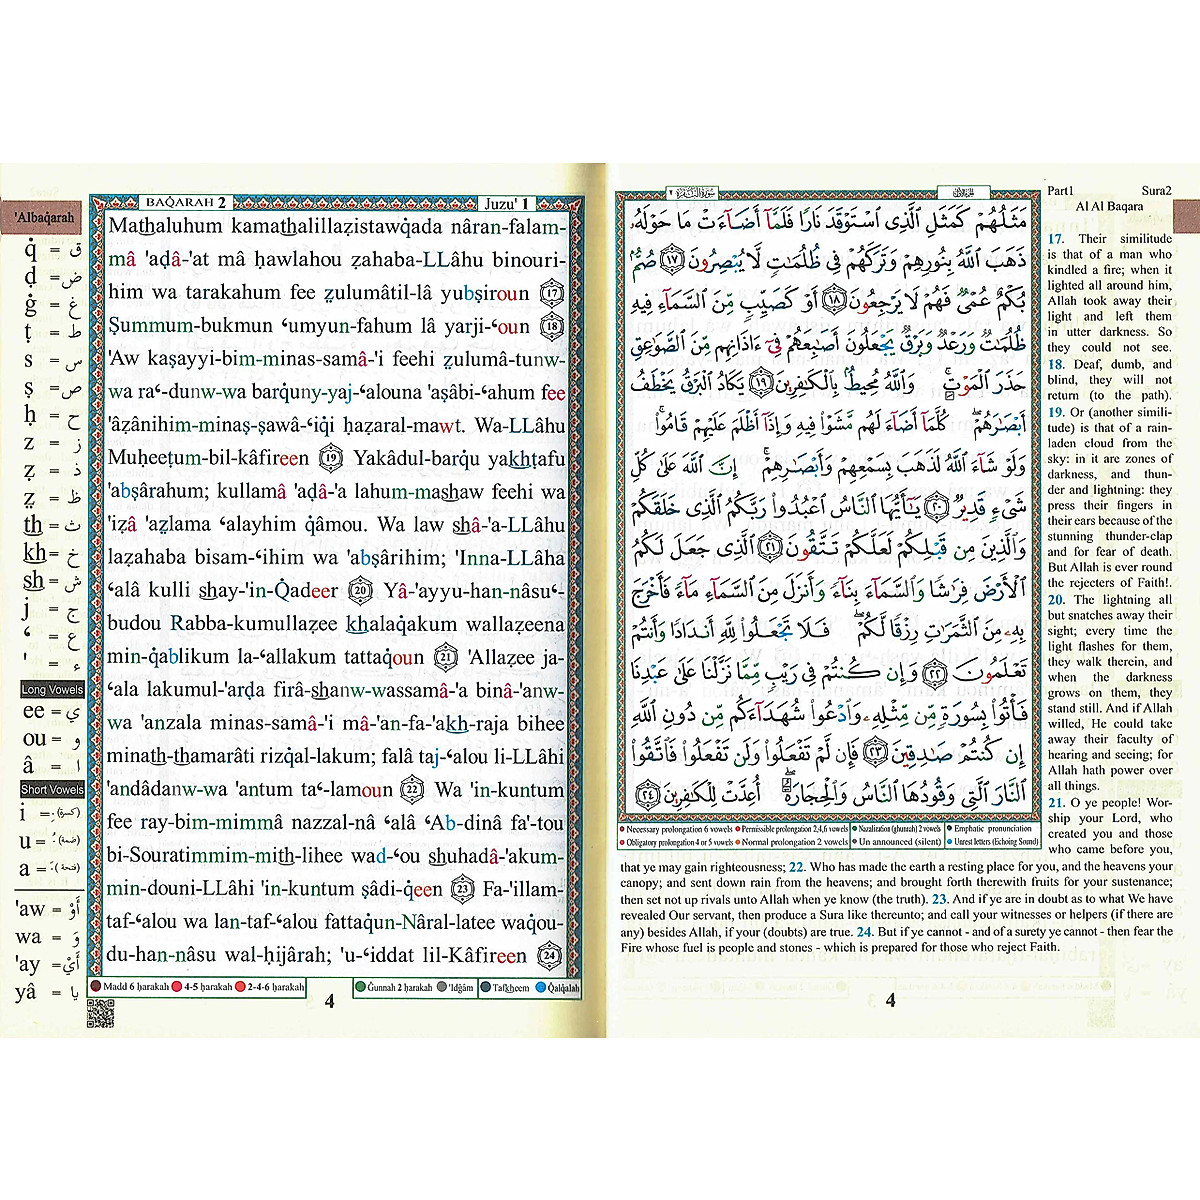 'Albaq̇arah
q̇ = ق
ḍ = ض
ġ = غ
ṭ = ط
s = س
ṣ = ص
ḥ = ح
z = ز
ẓ = ذ
ẓ = ظ
th = ث
kh = خ
sh = ش
j = ج
ʻ = ع
' = ء
Long Vowels
ee = ي
ou = و
â = ا
Short Vowels
i = (كسرة)
u = (ضمة)
a = (فتحة)
'aw = أَوْ
wa = وَ
'ay = أَيْ
yâ = يا
BAQ̇ARAH 2
Juzu' 1
Mathaluhum kamathalillaẓistawq̇ada nâran-falam-
mâ 'aḍâ-'at mâ ḥawlahou ẓahaba-LLâhu binouri-
him wa tarakahum fee ẓulumâtil-lâ yubṣiroun 17
Ṣummum-bukmun ʻumyun-fahum lâ yarji-ʻoun 18
'Aw kaṣayyi-bim-minas-samâ-'i feehi ẓulumâ-tunw-
wa raʻ-dunw-wa barq̇uny-yaj-ʻalouna 'aṣâbi-ʻahum fee
'âẓânihim-minaṣ-ṣawâ-ʻiq̇i ḥaẓaral-mawt. Wa-LLâhu
Muḥeeṭum-bil-kâfireen 19 Yakâdul-barq̇u yakhṭafu
'abṣârahum; kullamâ 'aḍâ-'a lahum-mashaw feehi wa
'iẓâ 'aẓlama ʻalayhim q̇âmou. Wa law shâ-'a-LLâhu
laẓahaba bisam-ʻihim wa 'abṣârihim; 'Inna-LLâha
ʻalâ kulli shay-'in-Q̇adeer 20 Yâ-'ayyu-han-nâsuʻ-
budou Rabba-kumullaẓee khalaq̇akum wallaẓeena
min-q̇ablikum la-ʻallakum tattaq̇oun 21 'Allaẓee ja-
ʻala lakumul-'arḍa firâ-shanw-wassamâ-'a binâ-'anw-
wa 'anzala minas-samâ-'i mâ-'an-fa-'akh-raja bihee
minath-thamarâti rizq̇al-lakum; falâ taj-ʻalou li-LLâhi
'andâdanw-wa 'antum taʻ-lamoun 22 Wa 'in-kuntum
fee ray-bim-mimmâ nazzal-nâ ʻalâ ʻAb-dinâ fa'-tou
bi-Souratimmim-mith-lihee wad-ʻou shuhadâ-'akum-
min-douni-LLâhi 'in-kuntum ṣâdi-q̇een 23 Fa-'illam-
taf-ʻalou wa lan-taf-ʻalou fattaq̇un-Nâral-latee waq̇ou-
du-han-nâsu wal-ḥijârah; 'u-ʻiddat lil-Kâfireen 24
Madd 6 ḥarakah 4-5 ḥarakah 2-4-6 ḥarakah
Ġunnah 2 ḥarakah 'Idġâm Tafkheem Q̇alq̇alah
4
سورة البقرة ٢
مَثَلُهُمْ كَمَثَلِ ٱلَّذِى ٱسْتَوْقَدَ نَارًا فَلَمَّآ أَضَآءَتْ مَا حَوْلَهُۥ
ذَهَبَ ٱللَّهُ بِنُورِهِمْ وَتَرَكَهُمْ فِى ظُلُمَٰتٍ لَّا يُبْصِرُونَ ١٧ صُمٌّۢ
بُكْمٌ عُمْىٌ فَهُمْ لَا يَرْجِعُونَ ١٨ أَوْ كَصَيِّبٍ مِّنَ ٱلسَّمَآءِ فِيهِ
ظُلُمَٰتٌ وَرَعْدٌ وَبَرْقٌ يَجْعَلُونَ أَصَٰبِعَهُمْ فِىٓ ءَاذَانِهِم مِّنَ ٱلصَّوَٰعِقِ
حَذَرَ ٱلْمَوْتِ ۚ وَٱللَّهُ مُحِيطٌۢ بِٱلْكَٰفِرِينَ ١٩ يَكَادُ ٱلْبَرْقُ يَخْطَفُ
أَبْصَٰرَهُمْ ۖ كُلَّمَآ أَضَآءَ لَهُم مَّشَوْا۟ فِيهِ وَإِذَآ أَظْلَمَ عَلَيْهِمْ قَامُوا۟ ۚ
وَلَوْ شَآءَ ٱللَّهُ لَذَهَبَ بِسَمْعِهِمْ وَأَبْصَٰرِهِمْ ۚ إِنَّ ٱللَّهَ عَلَىٰ كُلِّ
شَىْءٍ قَدِيرٌ ٢٠ يَٰٓأَيُّهَا ٱلنَّاسُ ٱعْبُدُوا۟ رَبَّكُمُ ٱلَّذِى خَلَقَكُمْ
وَٱلَّذِينَ مِن قَبْلِكُمْ لَعَلَّكُمْ تَتَّقُونَ ٢١ ٱلَّذِى جَعَلَ لَكُمُ
ٱلْأَرْضَ فِرَٰشًا وَٱلسَّمَآءَ بِنَآءً وَأَنزَلَ مِنَ ٱلسَّمَآءِ مَآءً فَأَخْرَجَ
بِهِۦ مِنَ ٱلثَّمَرَٰتِ رِزْقًا لَّكُمْ ۖ فَلَا تَجْعَلُوا۟ لِلَّهِ أَندَادًا وَأَنتُمْ
تَعْلَمُونَ ٢٢ وَإِن كُنتُمْ فِى رَيْبٍ مِّمَّا نَزَّلْنَا عَلَىٰ عَبْدِنَا
فَأْتُوا۟ بِسُورَةٍ مِّن مِّثْلِهِۦ وَٱدْعُوا۟ شُهَدَآءَكُم مِّن دُونِ ٱللَّهِ
إِن كُنتُمْ صَٰدِقِينَ ٢٣ فَإِن لَّمْ تَفْعَلُوا۟ وَلَن تَفْعَلُوا۟ فَٱتَّقُوا۟
ٱلنَّارَ ٱلَّتِى وَقُودُهَا ٱلنَّاسُ وَٱلْحِجَارَةُ ۖ أُعِدَّتْ لِلْكَٰفِرِينَ ٢٤
Necessary prolongation 6 vowels Permissible prolongation 2,4,6 vowels Nazalization (ghunnah) 2 vowels Emphatic pronunciation
Obligatory prolongation 4 or 5 vowels Normal prolongation 2 vowels Un announced (silent) Unrest letters (Echoing Sound)
Part1 Sura2
Al Al Baqara
17. Their similitude
is that of a man who
kindled a fire; when it
lighted all around him,
Allah took away their
light and left them
in utter darkness. So
they could not see.
18. Deaf, dumb, and
blind, they will not
return (to the path).
19. Or (another simili-
tude) is that of a rain-
laden cloud from the
sky: in it are zones of
darkness, and thun-
der and lightning: they
press their fingers in
their ears because of the
stunning thunder-clap
and for fear of death.
But Allah is ever round
the rejecters of Faith!.
20. The lightning all
but snatches away their
sight; every time the
light flashes for them,
they walk therein, and
when the darkness
grows on them, they
stand still. And if Allah
willed, He could take
away their faculty of
hearing and seeing; for
Allah hath power over
all things.
21. O ye people! Wor-
ship your Lord, who
created you and those
who came before you,
that ye may gain righteousness; 22. Who has made the earth a resting place for you, and the heavens your
canopy; and sent down rain from the heavens; and brought forth therewith fruits for your sustenance;
then set not up rivals unto Allah when ye know (the truth). 23. And if ye are in doubt as to what We have
revealed Our servant, then produce a Sura like thereunto; and call your witnesses or helpers (if there are
any) besides Allah, if your (doubts) are true. 24. But if ye cannot - and of a surety ye cannot - then fear the
Fire whose fuel is people and stones - which is prepared for those who reject Faith.
4